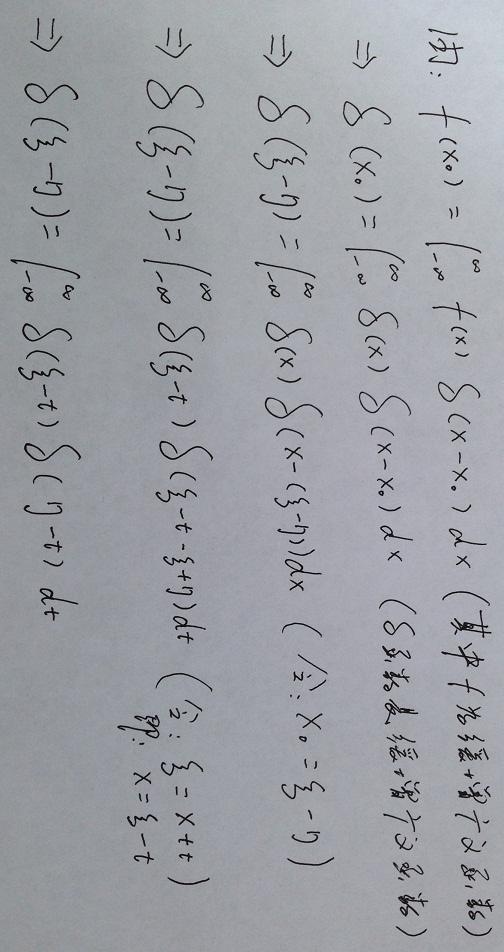 因: f(x₀) = ∫_{-∞}^{∞} f(x) δ(x-x₀) dx (其中 f 为缓增广义函数)
⇒ δ(x₀) = ∫_{-∞}^{∞} δ(x) δ(x-x₀) dx (δ函数是缓增广义函数)
⇒ δ(ξ-η) = ∫_{-∞}^{∞} δ(x) δ(x-(ξ-η)) dx (令: x₀ = ξ-η)
⇒ δ(ξ-η) = ∫_{-∞}^{∞} δ(ξ-t) δ(ξ-t-ξ+η) dt (令: ξ = x+t)
即: x = ξ-t
⇒ δ(ξ-η) = ∫_{-∞}^{∞} δ(ξ-t) δ(η-t) dt